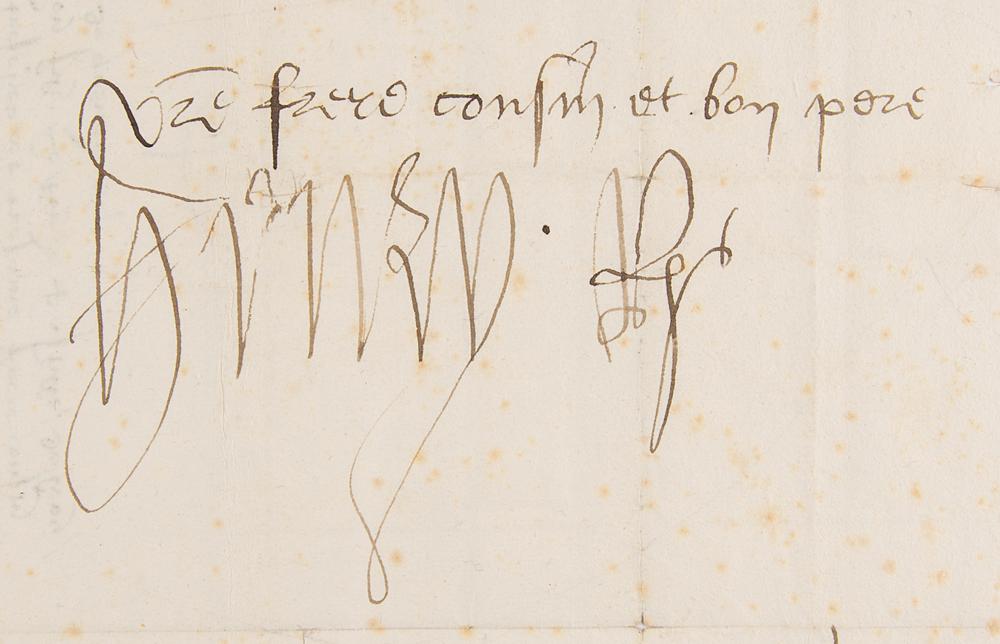 Vr̃e frere cousin et bon pere
Henry . R